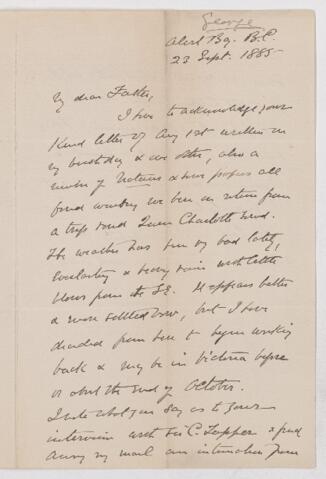 George
Alert Bay. B.C.
23 Sept. 1885
My dear Father,
I have to acknowledge your
kind letter of Aug 1st written on
my birthday & one other, also a
number of Natures & news papers all
found awaiting me here on return from
a trip round Queen Charlotte Sound.
The weather has been very bad lately,
everlasting & heavy rain with little
blows from the SE. It appears better
& more settled now, but I have
decided from here to begin working
back & may be in Victoria before
or about the end of October.
I note what you say as to your
interview with Sir C. Tupper & find
among my mail an intimation from